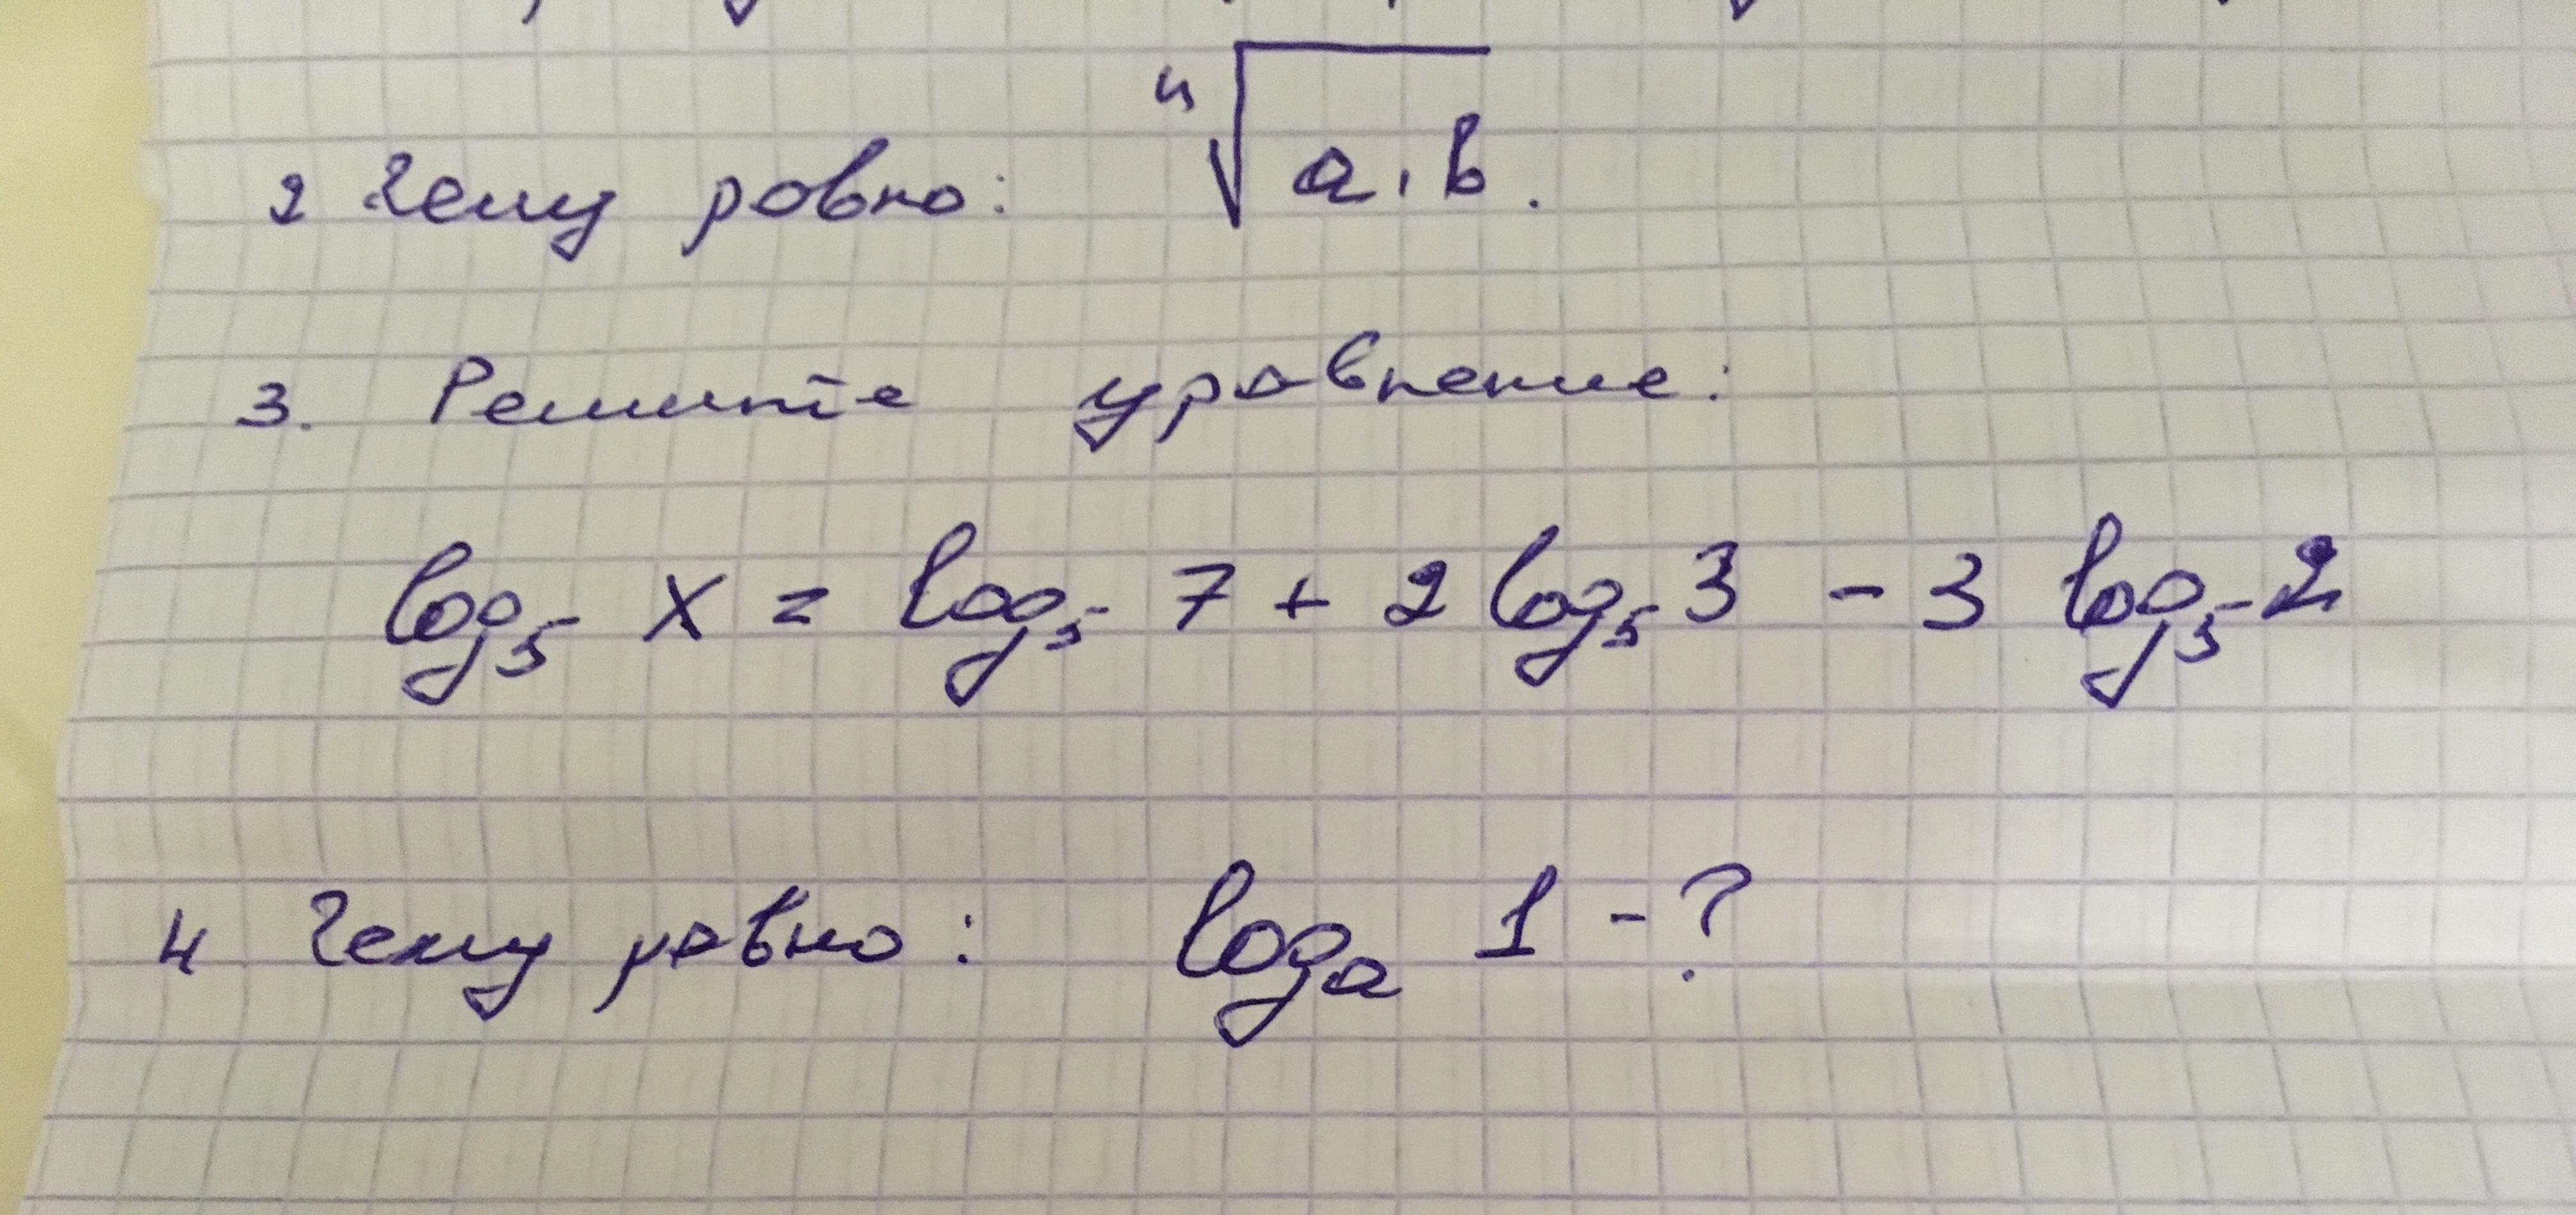 2 Чему равно: ⁿ√a·b.
3. Решите уравнение:
log₅ x = log₅ 7 + 2 log₅ 3 - 3 log₅ 2
4 Чему равно: logₐ 1 - ?